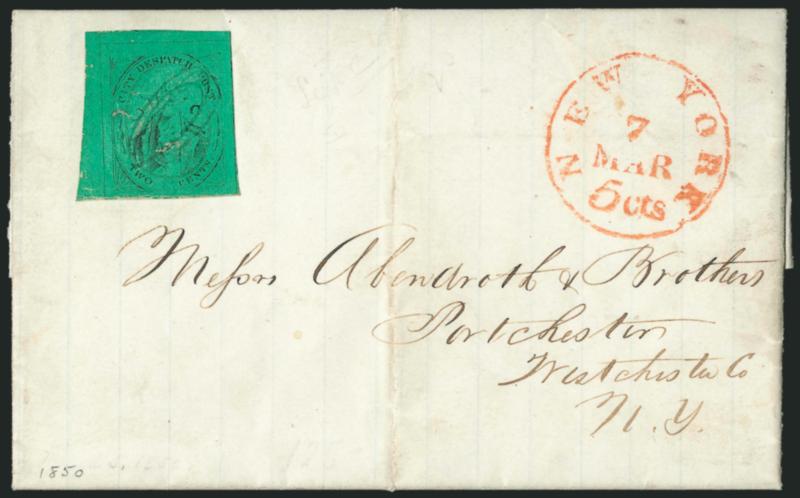 CITY DESPATCH POST
TWO CENTS
NEW YORK
7
MAR
5cts
Messrs Abendroth & Brothers
Portchester
Westchester Co
N.Y.
1850